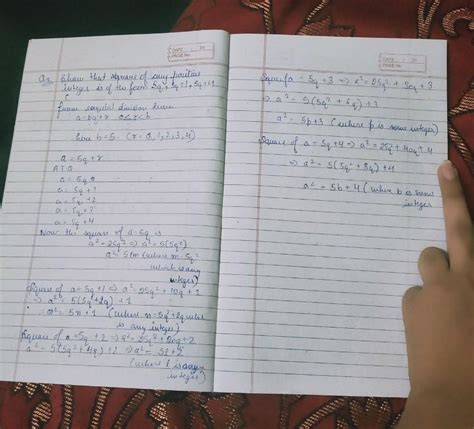 Q2 Show that square of any positive
integer is of the form 5q, 5q+1, 5q+4
From euclid division lemma
a = bq + r 0≤r<b
here b=5 (r = 0,1,2,3,4)
a = 5q + r
a = 5q
a = 5q + 1
a = 5q + 2
a = 5q + 3
a = 5q + 4
Now the square of a=5q is
a² = 25q² ⇒ a² = 5(5q²)
a² = 5m (where m = 5q²
which is any
integer)
Square of a = 5q+1 ⇒ a² = 25q² + 10q + 1
⇒ a² = 5(5q²+2q) + 1
∴ a² = 5n + 1 (where n = 5q²+2q
is any integer)
Square of a = 5q + 2 ⇒ a² = 25q² + 20q + 2
a² = 5(5q² + 4q) + 2 ⇒ a² = 5l + 2
(where l is any
integer)
DATE
PAGE No.
Square of a = 5q + 3 ⇒ a² = 25q² + 30q + 3
⇒ a² = 5(5q² + 6q) + 3
a² = 5p + 3 (where p is some integer)
Square of a = 5q + 4 ⇒ a² = 25q² + 40q + 4
⇒ a² = 5(5q² + 8q) + 4
a² = 5b + 4 (where b is some
integer